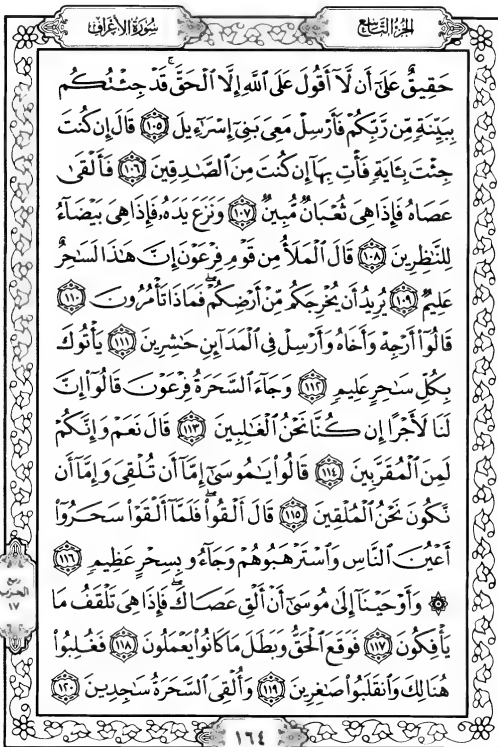 الجزء التاسع
سورة الأعراف
حَقِيقٌ عَلَىٰٓ أَن لَّآ أَقُولَ عَلَى ٱللَّهِ إِلَّا ٱلْحَقَّۚ قَدْ جِئْتُكُم
بِبَيِّنَةٍ مِّن رَّبِّكُمْ فَأَرْسِلْ مَعِىَ بَنِىٓ إِسْرَٰٓءِيلَ ١٠٥ قَالَ إِن كُنتَ
جِئْتَ بِـَٔايَةٍ فَأْتِ بِهَآ إِن كُنتَ مِنَ ٱلصَّٰدِقِينَ ١٠٦ فَأَلْقَىٰ
عَصَاهُ فَإِذَا هِىَ ثُعْبَانٌ مُّبِينٌ ١٠٧ وَنَزَعَ يَدَهُۥ فَإِذَا هِىَ بَيْضَآءُ
لِلنَّٰظِرِينَ ١٠٨ قَالَ ٱلْمَلَأُ مِن قَوْمِ فِرْعَوْنَ إِنَّ هَٰذَا لَسَٰحِرٌ
عَلِيمٌ ١٠٩ يُرِيدُ أَن يُخْرِجَكُم مِّنْ أَرْضِكُمْۖ فَمَاذَا تَأْمُرُونَ ١١٠
قَالُوٓا۟ أَرْجِهْ وَأَخَاهُ وَأَرْسِلْ فِى ٱلْمَدَآئِنِ حَٰشِرِينَ ١١١ يَأْتُوكَ
بِكُلِّ سَٰحِرٍ عَلِيمٍ ١١٢ وَجَآءَ ٱلسَّحَرَةُ فِرْعَوْنَ قَالُوٓا۟ إِنَّ
لَنَا لَأَجْرًا إِن كُنَّا نَحْنُ ٱلْغَٰلِبِينَ ١١٣ قَالَ نَعَمْ وَإِنَّكُمْ
لَمِنَ ٱلْمُقَرَّبِينَ ١١٤ قَالُوا۟ يَٰمُوسَىٰٓ إِمَّآ أَن تُلْقِىَ وَإِمَّآ أَن
نَّكُونَ نَحْنُ ٱلْمُلْقِينَ ١١٥ قَالَ أَلْقُوا۟ۖ فَلَمَّآ أَلْقَوْا۟ سَحَرُوٓا۟
أَعْيُنَ ٱلنَّاسِ وَٱسْتَرْهَبُوهُمْ وَجَآءُو بِسِحْرٍ عَظِيمٍ ١١٦
۞ وَأَوْحَيْنَآ إِلَىٰ مُوسَىٰٓ أَنْ أَلْقِ عَصَاكَۖ فَإِذَا هِىَ تَلْقَفُ مَا
يَأْفِكُونَ ١١٧ فَوَقَعَ ٱلْحَقُّ وَبَطَلَ مَا كَانُوا۟ يَعْمَلُونَ ١١٨ فَغُلِبُوا۟
هُنَالِكَ وَٱنقَلَبُوا۟ صَٰغِرِينَ ١١٩ وَأُلْقِىَ ٱلسَّحَرَةُ سَٰجِدِينَ ١٢٠
ربع
الحزب
١٧
١٦٤